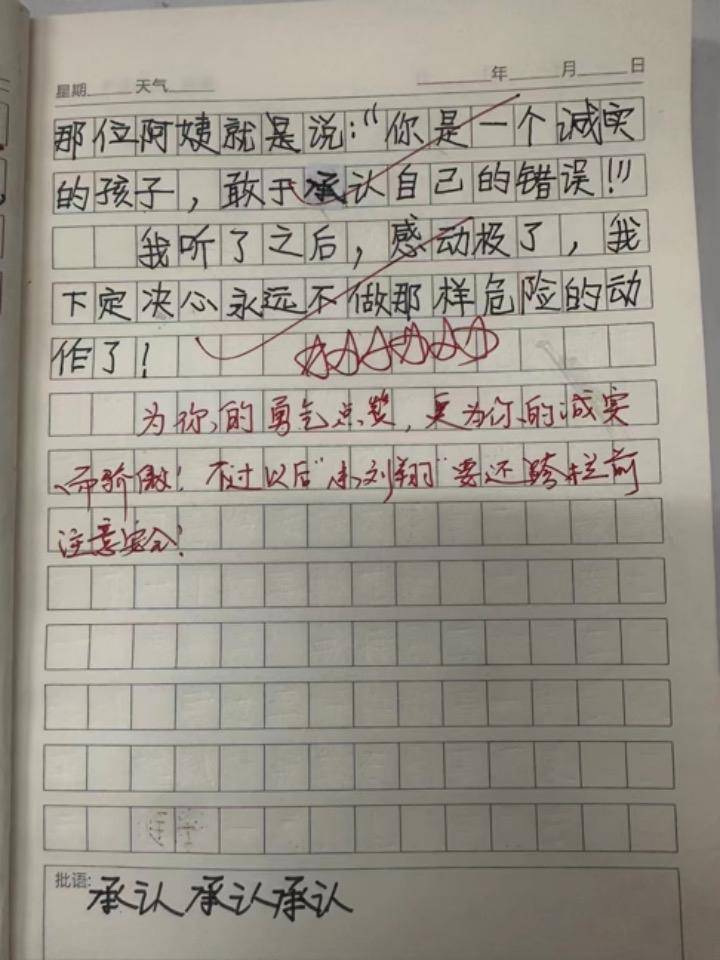 星期 天气 年 月 日
那位阿姨就是说：“你是一个诚实
的孩子，敢于承认自己的错误！”
我听了之后，感动极了，我
下定决心永远不做那样危险的动
作了！
为你的勇气点赞，更为你的诚实
而骄傲！不过以后“小刘翔”要还跨栏前
注意安全！
批语：
承认承认承认